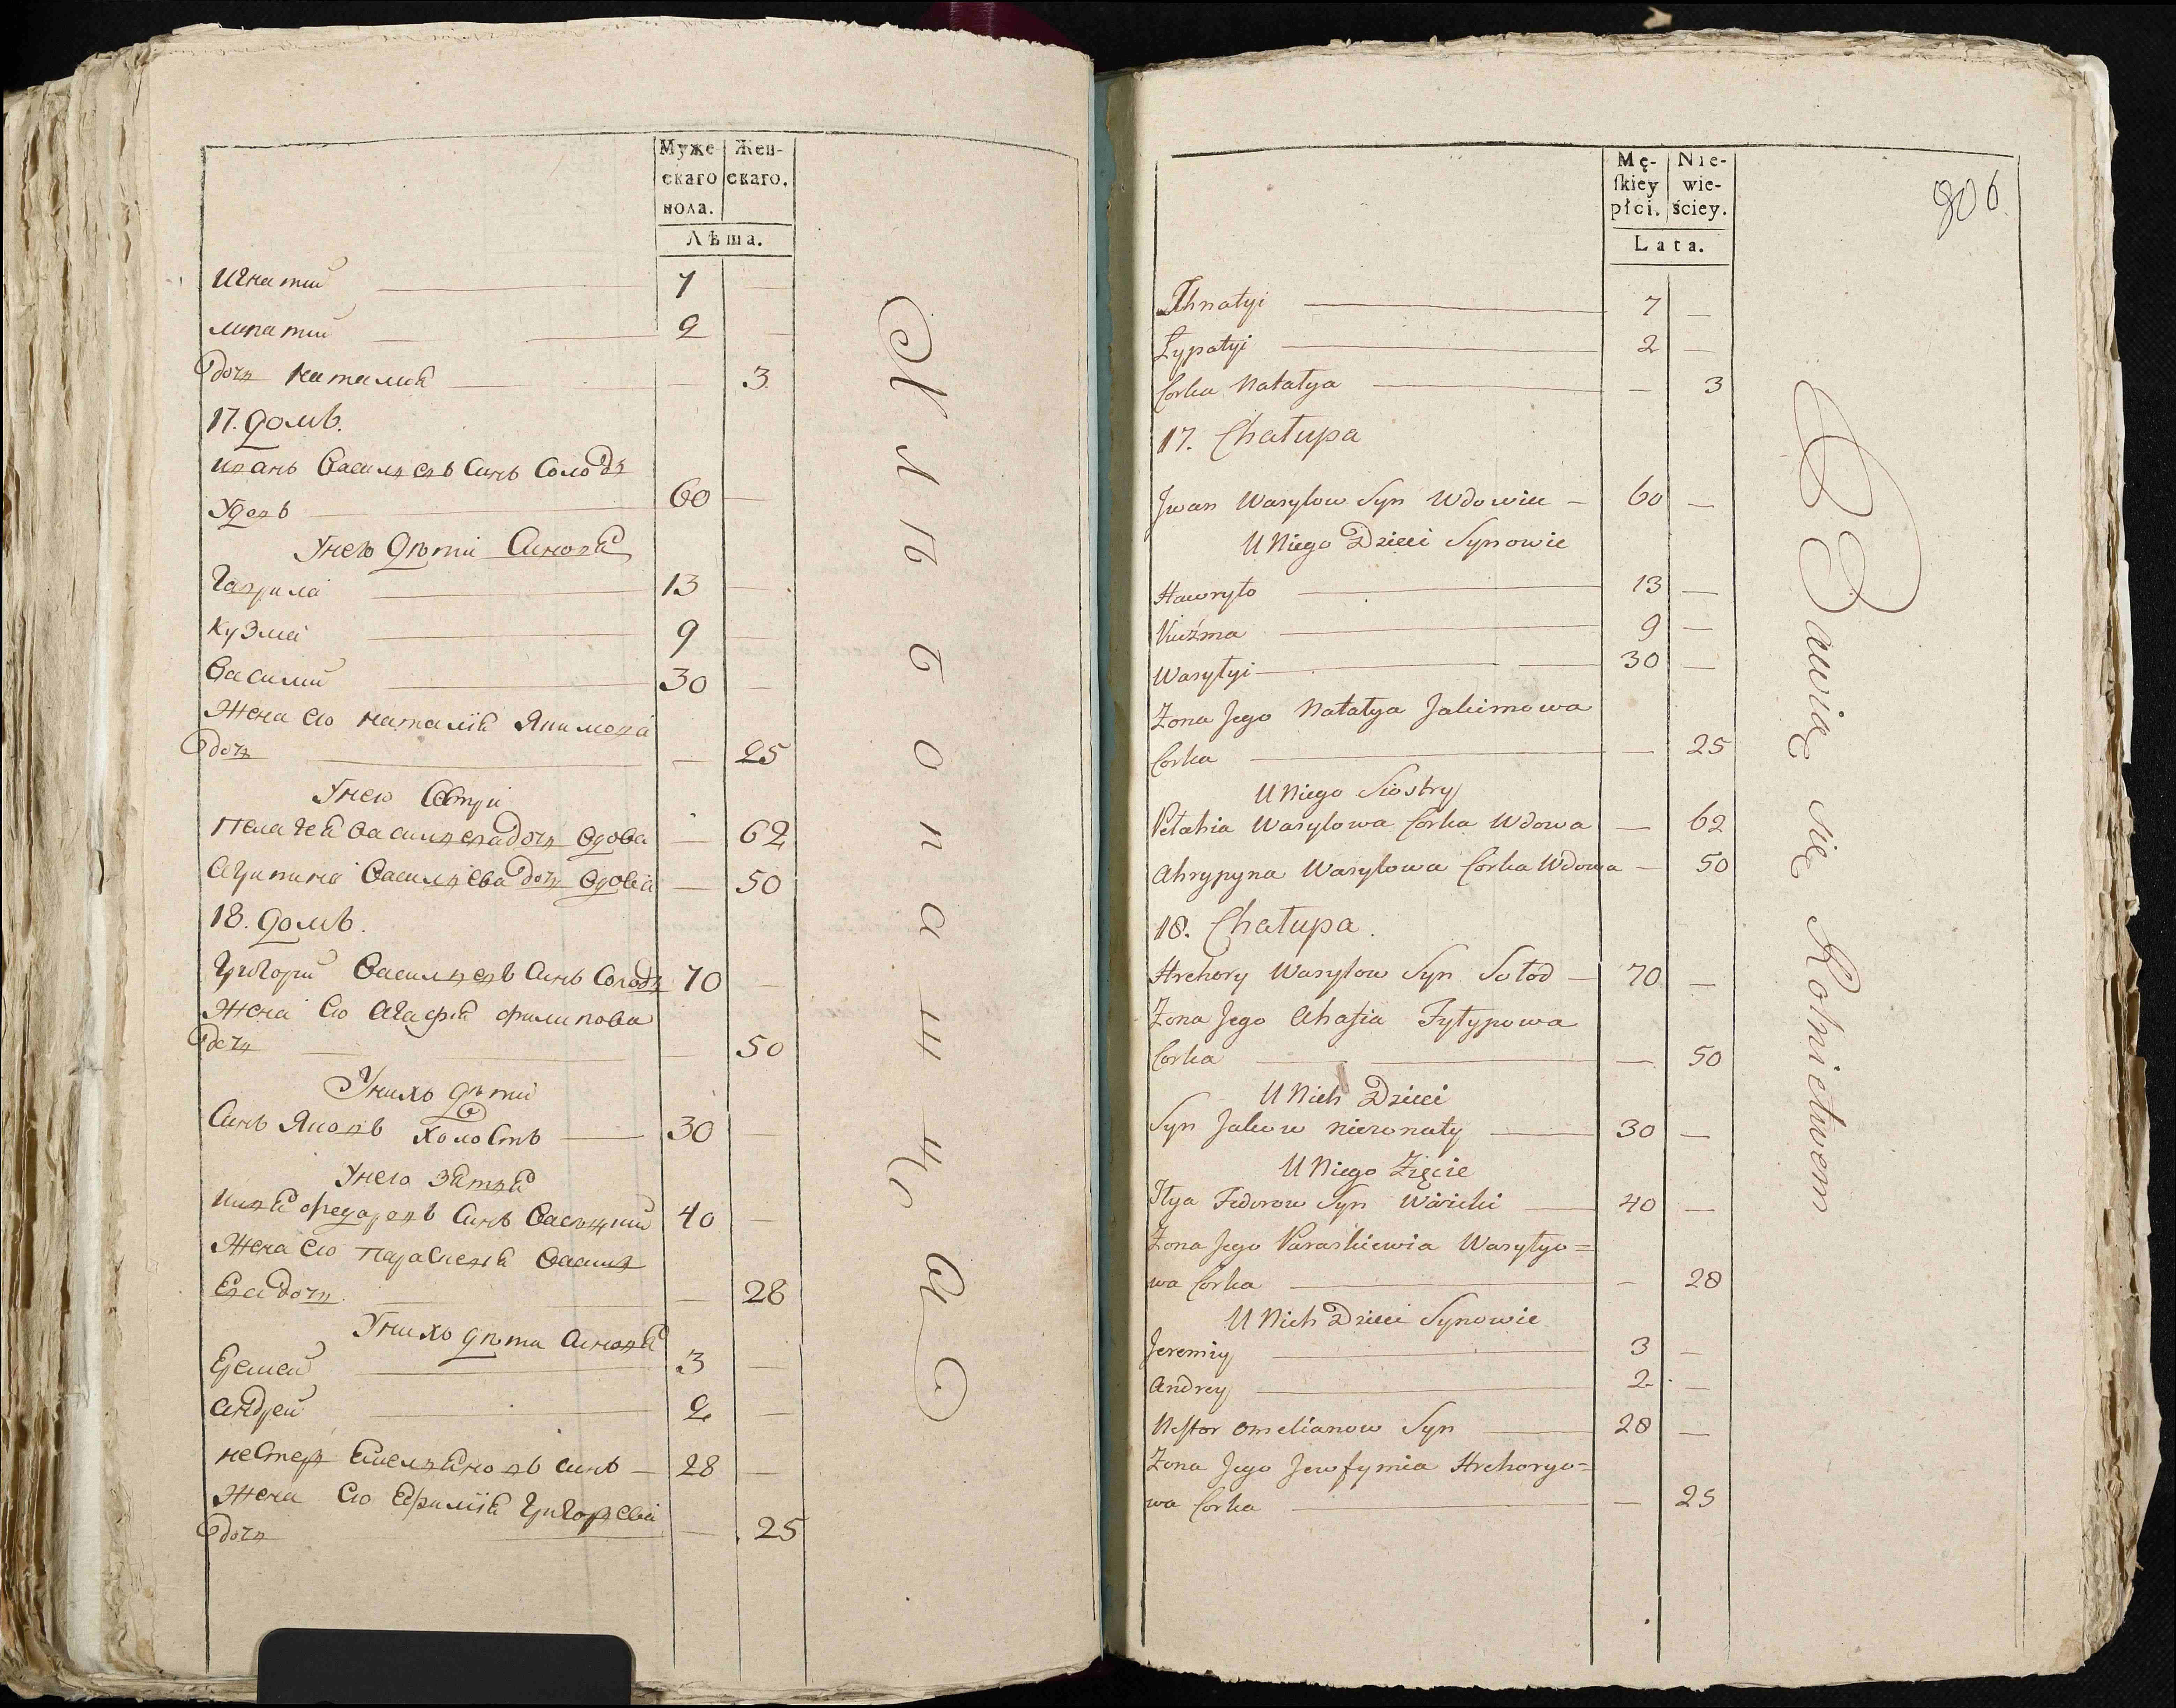 Муже- Жен-
скаго скаго.
пола.
Лѣта.
Игнатий 7 —
Липатий 2 —
дочь Наталия — 3
17. домъ.
иванъ Васильевъ Синъ Солодъ
Удовъ 60 —
Унего дѣти Синовя
Гаврила 13 —
Кузма 9 —
Василий 30 —
Жена Его Наталія Якимова
дочь — 25
Унего Сестри
Пелагея Васильева дочь вдова — 62
Агрипина Васильева дочь вдова — 50
18. домъ.
Григорий Васильевъ Синъ Солодъ 70 —
Жена Его Агафія филипова
дочь — 50
Унихъ дѣти
Синъ Яковъ холостъ — 30 —
Унего Зятья
Илья федоровъ Синъ 40 —
Жена Его Параскевия Василь
Ева дочь — 28
Унихъ дѣти Синовя
Еремей 3 —
Андрей 2 —
Нестер Емельяновъ синъ — 28 —
Жена Его Ефимія Григорьева
дочь — 25
Хлѣбопашца
Mę- Nie-
ſkiey wie-
płci. ściey.
Lata.
806
Ihnatyi 7 —
Łypatyi 2 —
Corka Natalya — 3
17. Chałupa
Jwan Wasylow Syn Wdowiec — 60 —
U Niego Dzieci Synowie
Hawryło 13 —
Kuźma 9 —
Wasylyi 30 —
Żona Jego Natalya Jakimowa
Corka — 25
U Niego Siostry
Pelahia Wasylowa Corka Wdowa — 62
Ahrypyna Wasylowa Corka Wdowa — 50
18. Chałupa.
Hrehory Wasylow Syn Sołod — 70 —
Żona Jego Ahafia Fylypowa
Corka — 50
U Nich Dzieci
Syn Jakow nieżonaty — 30 —
U Niego Zięcie
Ilya Fedorow Syn — 40 —
Żona Jego Paraskiewia Wasylyo=
wa Corka — 28
U Nich Dzieci Synowie
Jeremiy 3 —
Andrey 2 —
Nestor Omelianow Syn 28 —
Żona Jego Jewfymia Hrehoryo=
wa Corka — 25
Bawią się Rolnictwem